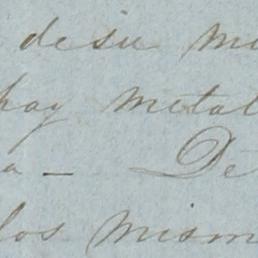 desu m
hay metal
a — De
los mism